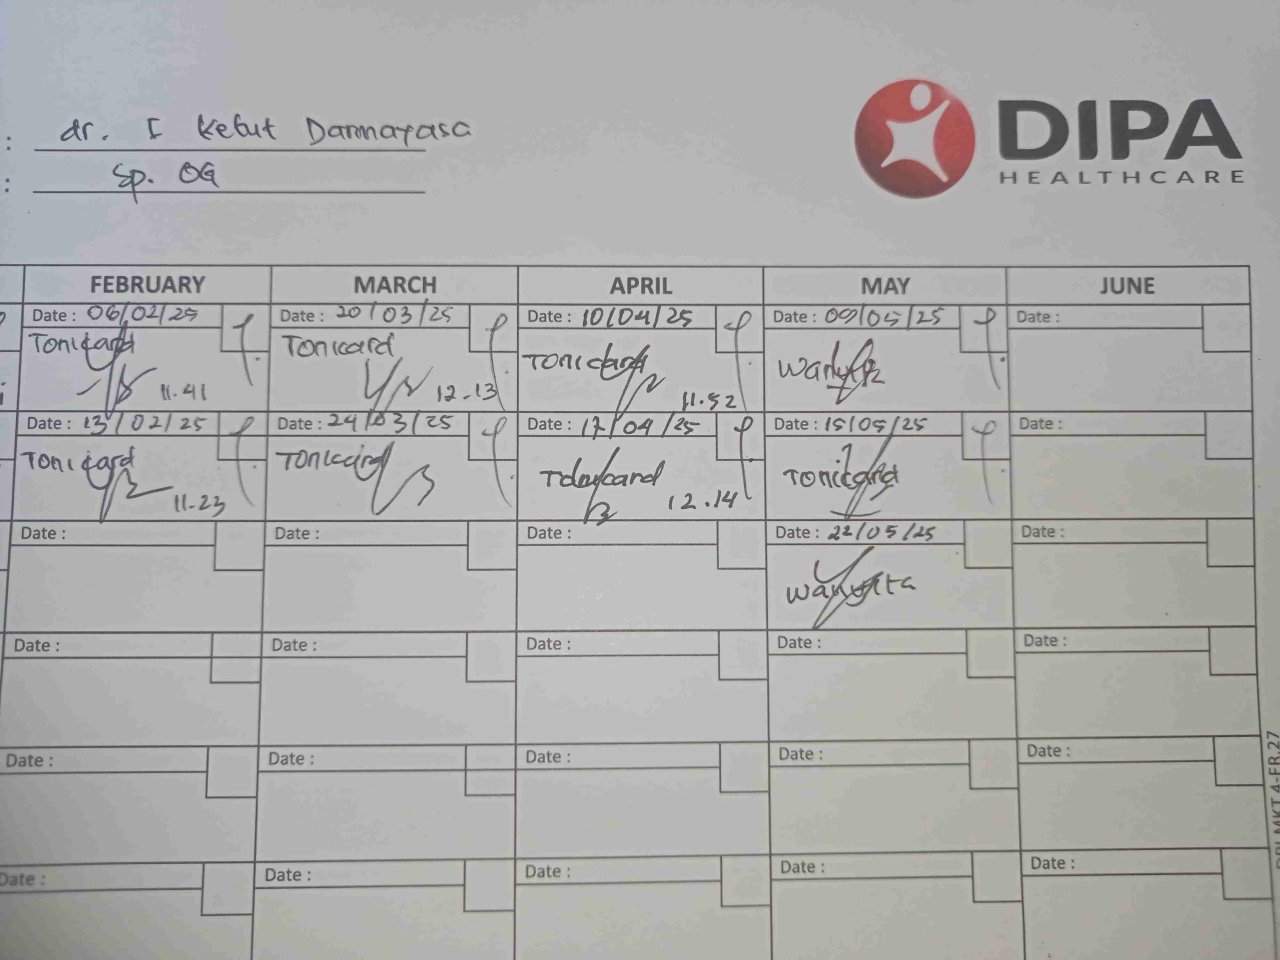 : dr. I Ketut Darmayasa
: Sp. OG
DIPA
HEALTHCARE
FEBRUARY MARCH APRIL MAY JUNE
Date : 06/02/25 Date : 20/03/25 Date : 10/04/25 Date : 09/05/25 Date :
Tonicard Tonicard Tonicard
11.41 12.13 11.52
Date : 13/02/25 Date : 24/03/25 Date : 17/04/25 Date : 15/05/25 Date :
Tonicard Tonicard Tonicard
11.23 12.14
Date : Date : Date : Date : 22/05/25 Date :
Date : Date : Date : Date : Date :
Date : Date : Date : Date : Date :
Date : Date : Date : Date : Date :